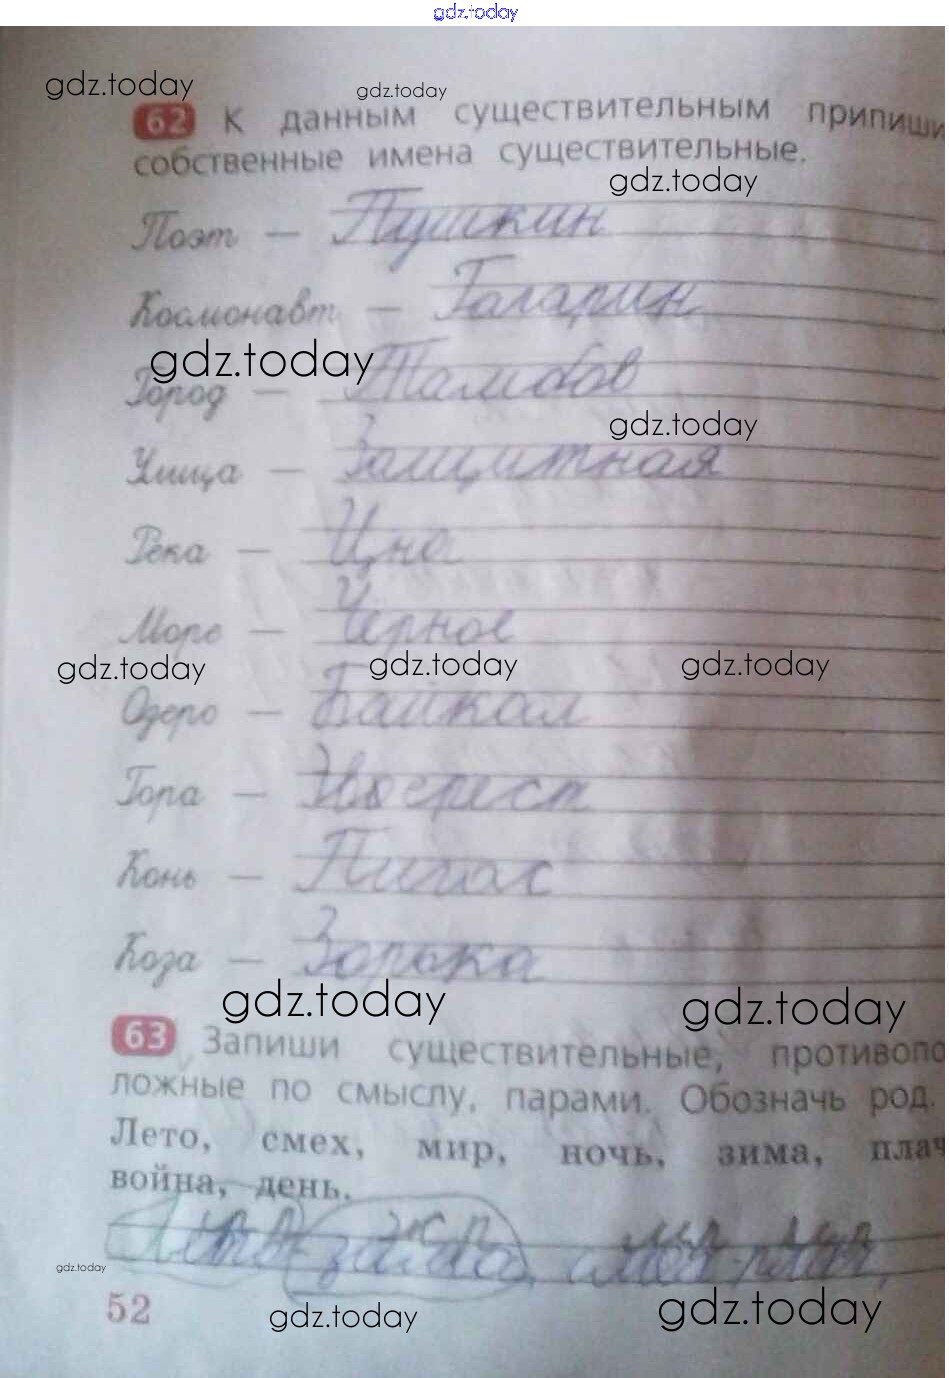 gdz.today
gdz.today
gdz.today
62 К данным существительным припиши
собственные имена существительные.
gdz.today
Поэт — Пушкин
Космонавт — Гагарин
gdz.today
Город — Тамбов
gdz.today
Улица — Защитная
Река — Цна
Море — Чёрное
gdz.today gdz.today gdz.today
Озеро — Байкал
Гора — Эверест
Конь — Пигас
Коза — Зорька
gdz.today gdz.today
63 Запиши существительные, противопо
ложные по смыслу, парами. Обозначь род.
Лето, смех, мир, ночь, зима, плач
война, день.
ж р м р м р
Лето-зима, смех-плач,
gdz.today
52
gdz.today
gdz.today